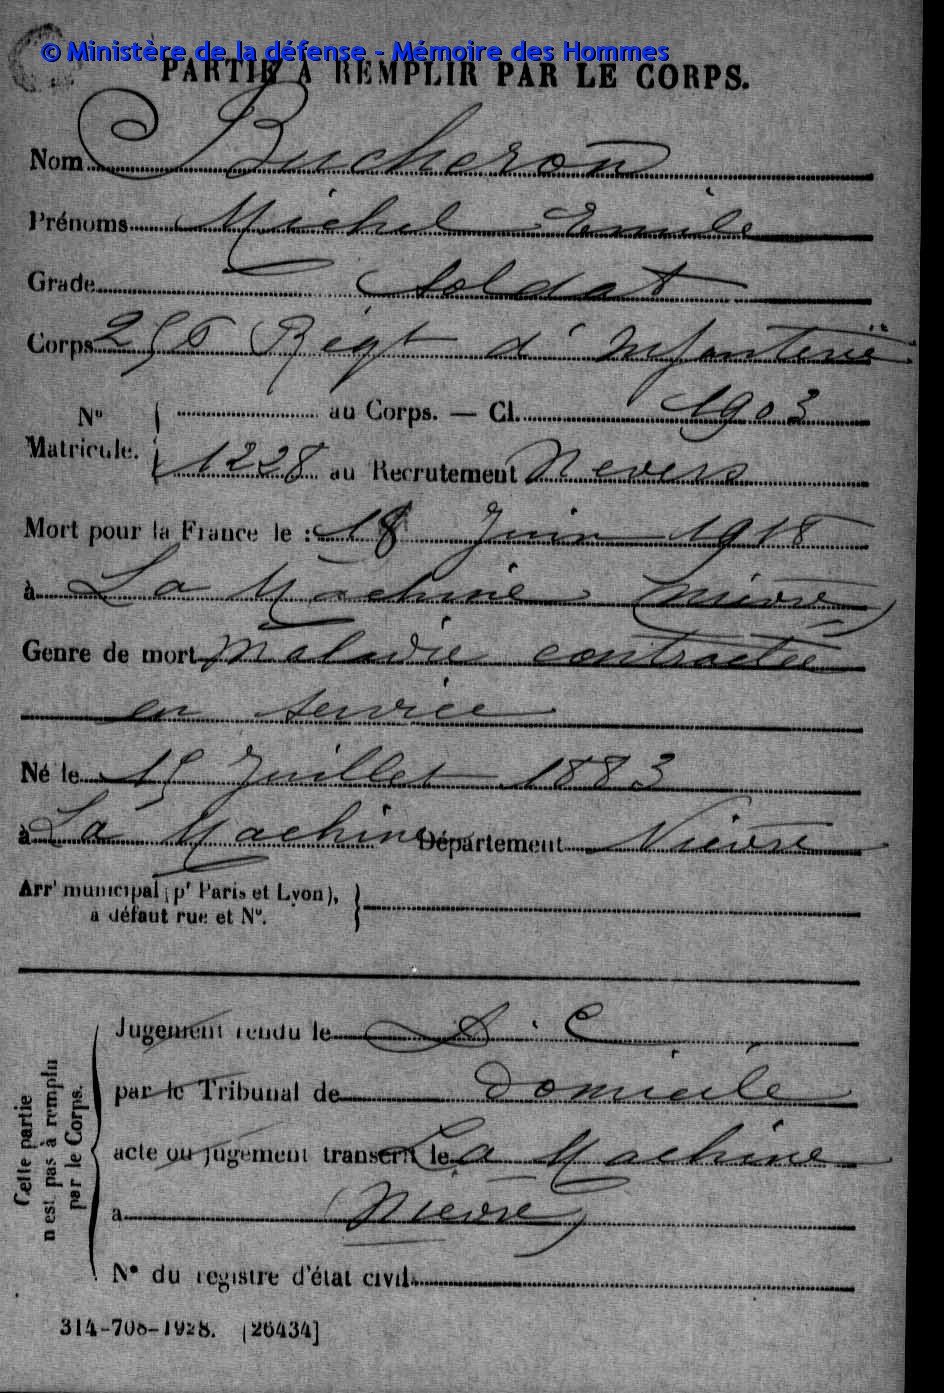 © Ministère de la défense - Mémoire des Hommes
PARTIE À REMPLIR PAR LE CORPS.
Nom Bucheron
Prénoms Michel Emile
Grade Soldat
Corps 256 Régt d'Infanterie
N° Matricule. { au Corps. — Cl. 1903
1228 au Recrutement Nevers
Mort pour la France le : 18 Juin 1918
à La Machine (Nièvre)
Genre de mort Maladie contractée
en service
Né le 15 Juillet 1883
à La Machine Département Nièvre
Arrt municipal (pr Paris et Lyon),
à défaut rue et N°.
Cette partie
n'est pas à remplir
par le Corps.
Jugement rendu le D. C
par le Tribunal de domicile
acte ou jugement transcrit le La Machine
à (Nièvre)
N° du registre d'état civil
314-708-1928. [26434]